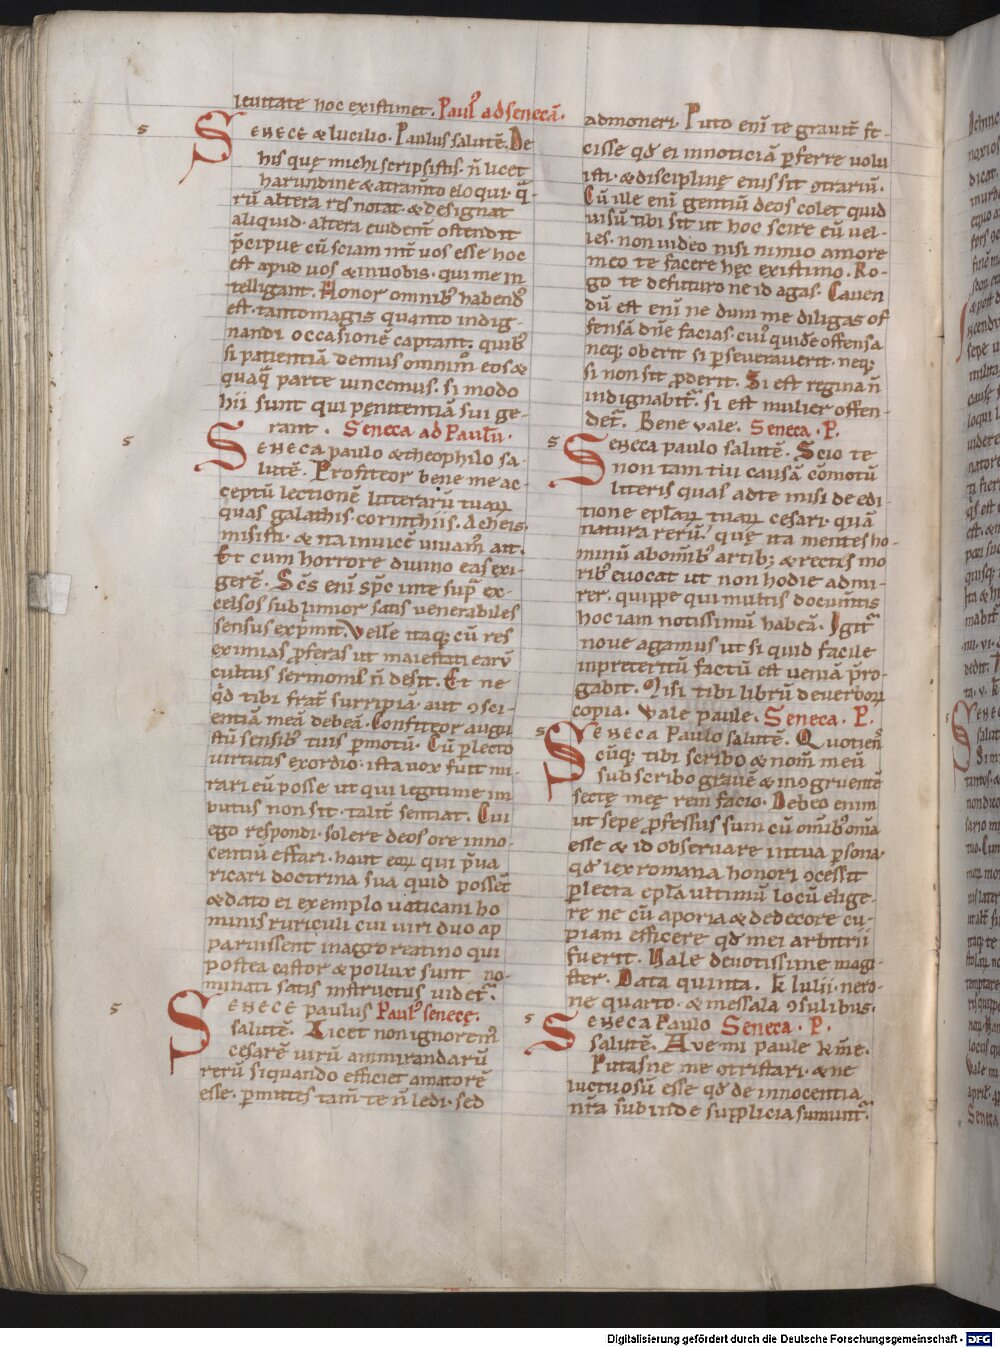 leuitate hoc existimet. Paul᷒ ad senecā.
Senece & lucilio. Paulus salutē. De
his quę michi scripsistis. n̄ licet
harundine & atram̄to eloqui. q̄
rū altera res notat. & designat
aliquid. altera euident̄ ostendit
p̄cipue cū sciam int̄ uos esse hoc
est apud uos & in uobis. qui me in
telligant. Honor omnib᷒ habend᷒
est. tantomagis quanto indig-
nandi occasionē captant. quib᷒
si patientiā demus omnim̄ eos &
quaq̄ parte uincemus. si modo
hii sunt qui penitentiā sui ge-
rant. Seneca ad Paulū.
Seneca paulo & theophilo sa-
lutē. Profiteor bene me ac-
ceptū lectionē litterarū tuaꝝ
quas galathis. corinthiis. Acheis.
misisti. & ita inuicē uiuam᷒ aīt.
Et cum horrore diuino eas exi-
gerē. Sc̄s enī sp̄c in te sup̄ ex-
celsos sublimior satis uenerabiles
sensus exp̄mit. Velle itaq; cū res
eximias ꝓferas ut maiestati earū
cultus sermonis n̄ desit. Et ne
q̄d tibi frat̄ surripiā. aut ꝯsci-
entiā meā debeā. Confiteor augu
stū sensib᷒ tuis ꝑmotū. Cū ꝑlecto
uirtutis exordio. ista uox fuit mi-
rari eū posse ut qui legitime im
butus non sit. talit̄ sentiat. Cui
ego respondi. solere deos ore inno-
centiū effari. haut eoꝝ qui p̄ua
ricari doctrina sua quid possēt
& dato ei exemplo uaticani ho
minis ruriculi cui uiri duo ap
paruissent in agro reatino qui
postea castor & pollux sunt no-
minati satis instructus uidet᷑.
Senece paulus Paul᷒ senecę.
salutē. Licet non ignorem᷒
cesarē nr̄ū ammirandarū
rerū si quando efficiet amatorē
esse. ꝑmittes tam̄ te n̄ ledi. sed
admoneri. Puto enī te grauit̄ fe-
cisse qd̄ ei in noticiā ꝑferre uolu
isti. & disciplinę eius sit ꝯtrariū.
Cū ille enī gentiū deos colet quid
uisū tibi sit ut hoc scire eū uel-
les. non uideo nisi nimio amore
meo te facere hęc existimo. Ro-
go te de futuro ne id agas. Cauen
dū est enī ne dum me diligas of
fensā dn̄e facias. cui᷒ quidē offensa
neq; oberit si ꝑseuerauerit. neq;
si non sit ꝓderit. Si est regina n̄
indignabit᷑. si est mulier offen-
det᷑. Bene uale. Seneca. P.
Seneca paulo salutē. Scio te
non tam tui causā cōmotū
literis quas ad te misi de edi
tione ep̄laꝝ tuaꝝ cesari. quā
natura rerū. quę ita mentes ho-
minū abom̄ib᷒ artib; & rectis mo
rib᷒ euocat ut non hodie admi-
rer. quippe qui multis docum̄tis
hoc iam notissimū habeā. Igit᷑
noue agamus ut si quid facile
in preteritū factū est ueniā p̄ro-
gabit. Misi tibi librū de uerboꝝ
copia. Vale paule. Seneca. P.
Seneca Paulo salutē. Quotien᷒
cūq; tibi scribo & nom̄ meū
sub scribo grauē & inꝯgruentē
sectę meę rem facio. Debeo enim
ut sepe ꝓfessus sum cū om̄ib᷒ om̄ia
esse & id obseruare in tua ꝑsona.
qd̄ lex romana honori ꝯcessit
ꝑlecta ep̄la ultimū locū elige-
re ne cū aporia & dedecore cu-
piam efficere qd̄ mei arbitrii
fuerit. Vale deuotissime magi-
ster. Data quinta. k̄l iulii. nero-
ne quarto. & messala ꝯsulibus.
Seneca Paulo Seneca. P.
salutē. Aue mi paule km̄e.
Putasne me ꝯtristari. & ne
luctuosū esse qd̄ de innocentia
nr̄a subinde supplicia sumunt᷑.
Digitalisierung gefördert durch die Deutsche Forschungsgemeinschaft - DFG